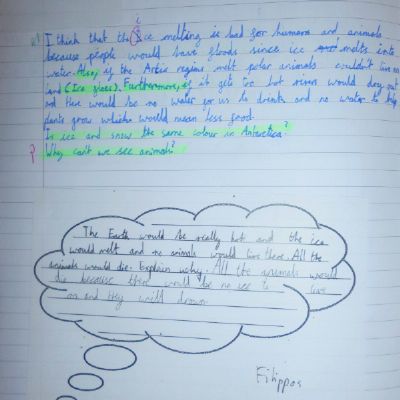 I think that the ice melting is bad for humans and animals
because people would have floods since ice melts into
water. Also, if the Artic regions melt polar animals couldn't live on
land (Ice glass). Furthermore, if it gets too hot rivers would dry out
and there would be no water for us to drink and no water to help
plants grow which would mean less food.
Is ice and snow the same colour in Antarctica?
Why can't we see animals?
The Earth would be really hot and the ice
would melt and no animals would live there. All the
animals would die. Explain why. All the animals would
die because there would be no ice to live
on and they will drown.
Filippos